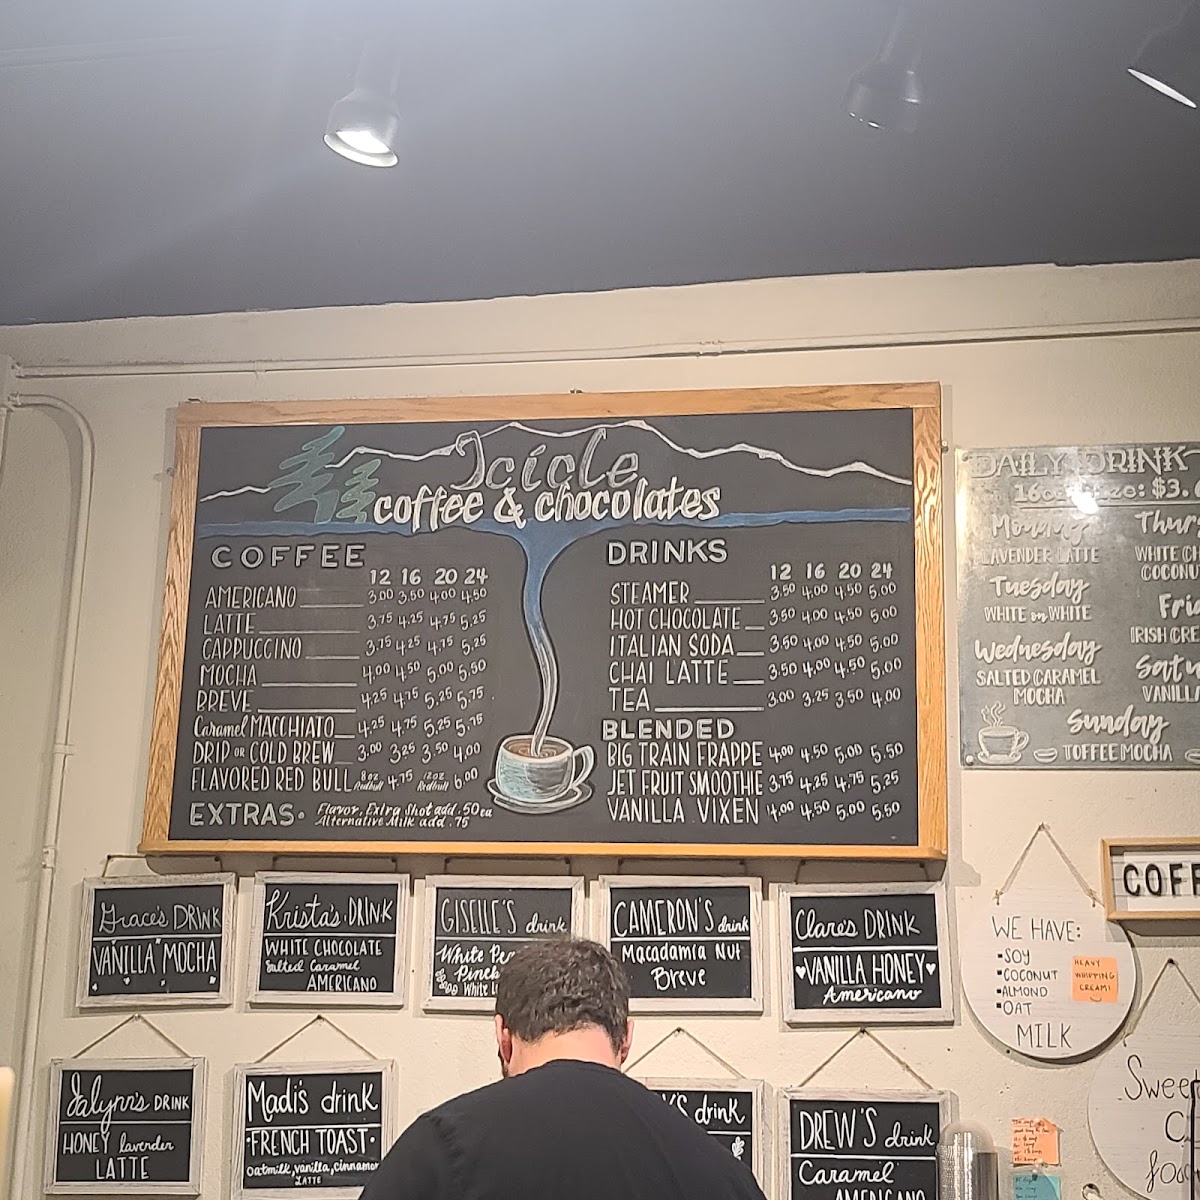 Icicle
coffee & chocolates
COFFEE
12 16 20 24
AMERICANO 3.00 3.50 4.00 4.50
LATTE 3.75 4.25 4.75 5.25
CAPPUCCINO 3.75 4.25 4.75 5.25
MOCHA 4.00 4.50 5.00 5.50
BREVE 4.25 4.75 5.25 5.75
Caramel MACCHIATO 4.25 4.75 5.25 5.75
DRIP OR COLD BREW 3.00 3.25 3.50 4.00
FLAVORED RED BULL 8oz Redbull 4.75 12oz Redbull 6.00
EXTRAS• Flavor, Extra Shot add .50 ea
Alternative Milk add .75
DRINKS
12 16 20 24
STEAMER 3.50 4.00 4.50 5.00
HOT CHOCOLATE 3.50 4.00 4.50 5.00
ITALIAN SODA 3.50 4.00 4.50 5.00
CHAI LATTE 3.50 4.00 4.50 5.00
TEA 3.00 3.25 3.50 4.00
BLENDED
BIG TRAIN FRAPPE 4.00 4.50 5.00 5.50
JET FRUIT SMOOTHIE 3.75 4.25 4.75 5.25
VANILLA VIXEN 4.00 4.50 5.00 5.50
DAILY DRINK
Monday
LAVENDER LATTE
Tuesday
WHITE on WHITE
Wednesday
SALTED CARAMEL
MOCHA
WHITE
COCONUT
Sunday
TOFFEE MOCHA
Grace's DRINK
"VANILLA" MOCHA
Krista's DRINK
WHITE CHOCOLATE
Salted Caramel
AMERICANO
GISELLE'S drink
White
White
CAMERON'S drink
Macadamia Nut
Breve
Clare's DRINK
VANILLA HONEY
Americano
WE HAVE:
▪SOY
▪COCONUT
▪ALMOND
▪OAT
MILK
HEAVY
WHIPPING
CREAM!
COFF
Jalynn's DRINK
HONEY lavender
LATTE
Madi's drink
•FRENCH TOAST•
Oatmilk, vanilla, cinnamon
LATTE
drink
DREW'S drink
Caramel
AMERICANO
Sweet